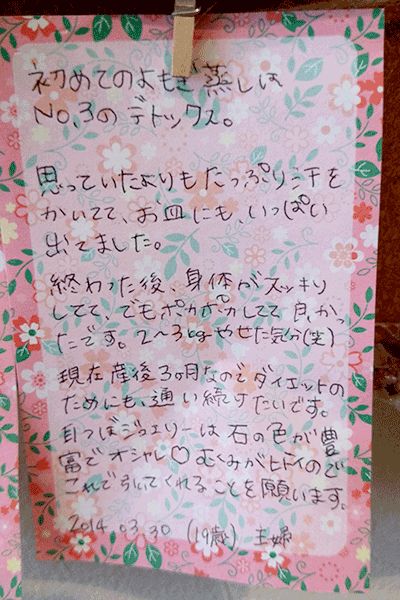 初めてのよもぎ蒸しは
No.3のデトックス。
思っていたよりもたっぷり汗を
かいてて、お皿にも、いっぱい
出てました。
終わった後、身体がスッキリ
してて、でもポカポカしてて良かっ
たです。2〜3kgやせた気分(笑)
現在産後3ヶ月なのでダイエットの
ためにも、通い続けたいです。
耳つぼジュエリーは石の色が豊
富でオシャレ♡むくみがヒドイので
これで引いてくれることを願います。
2014.03.30 (19歳) 主婦